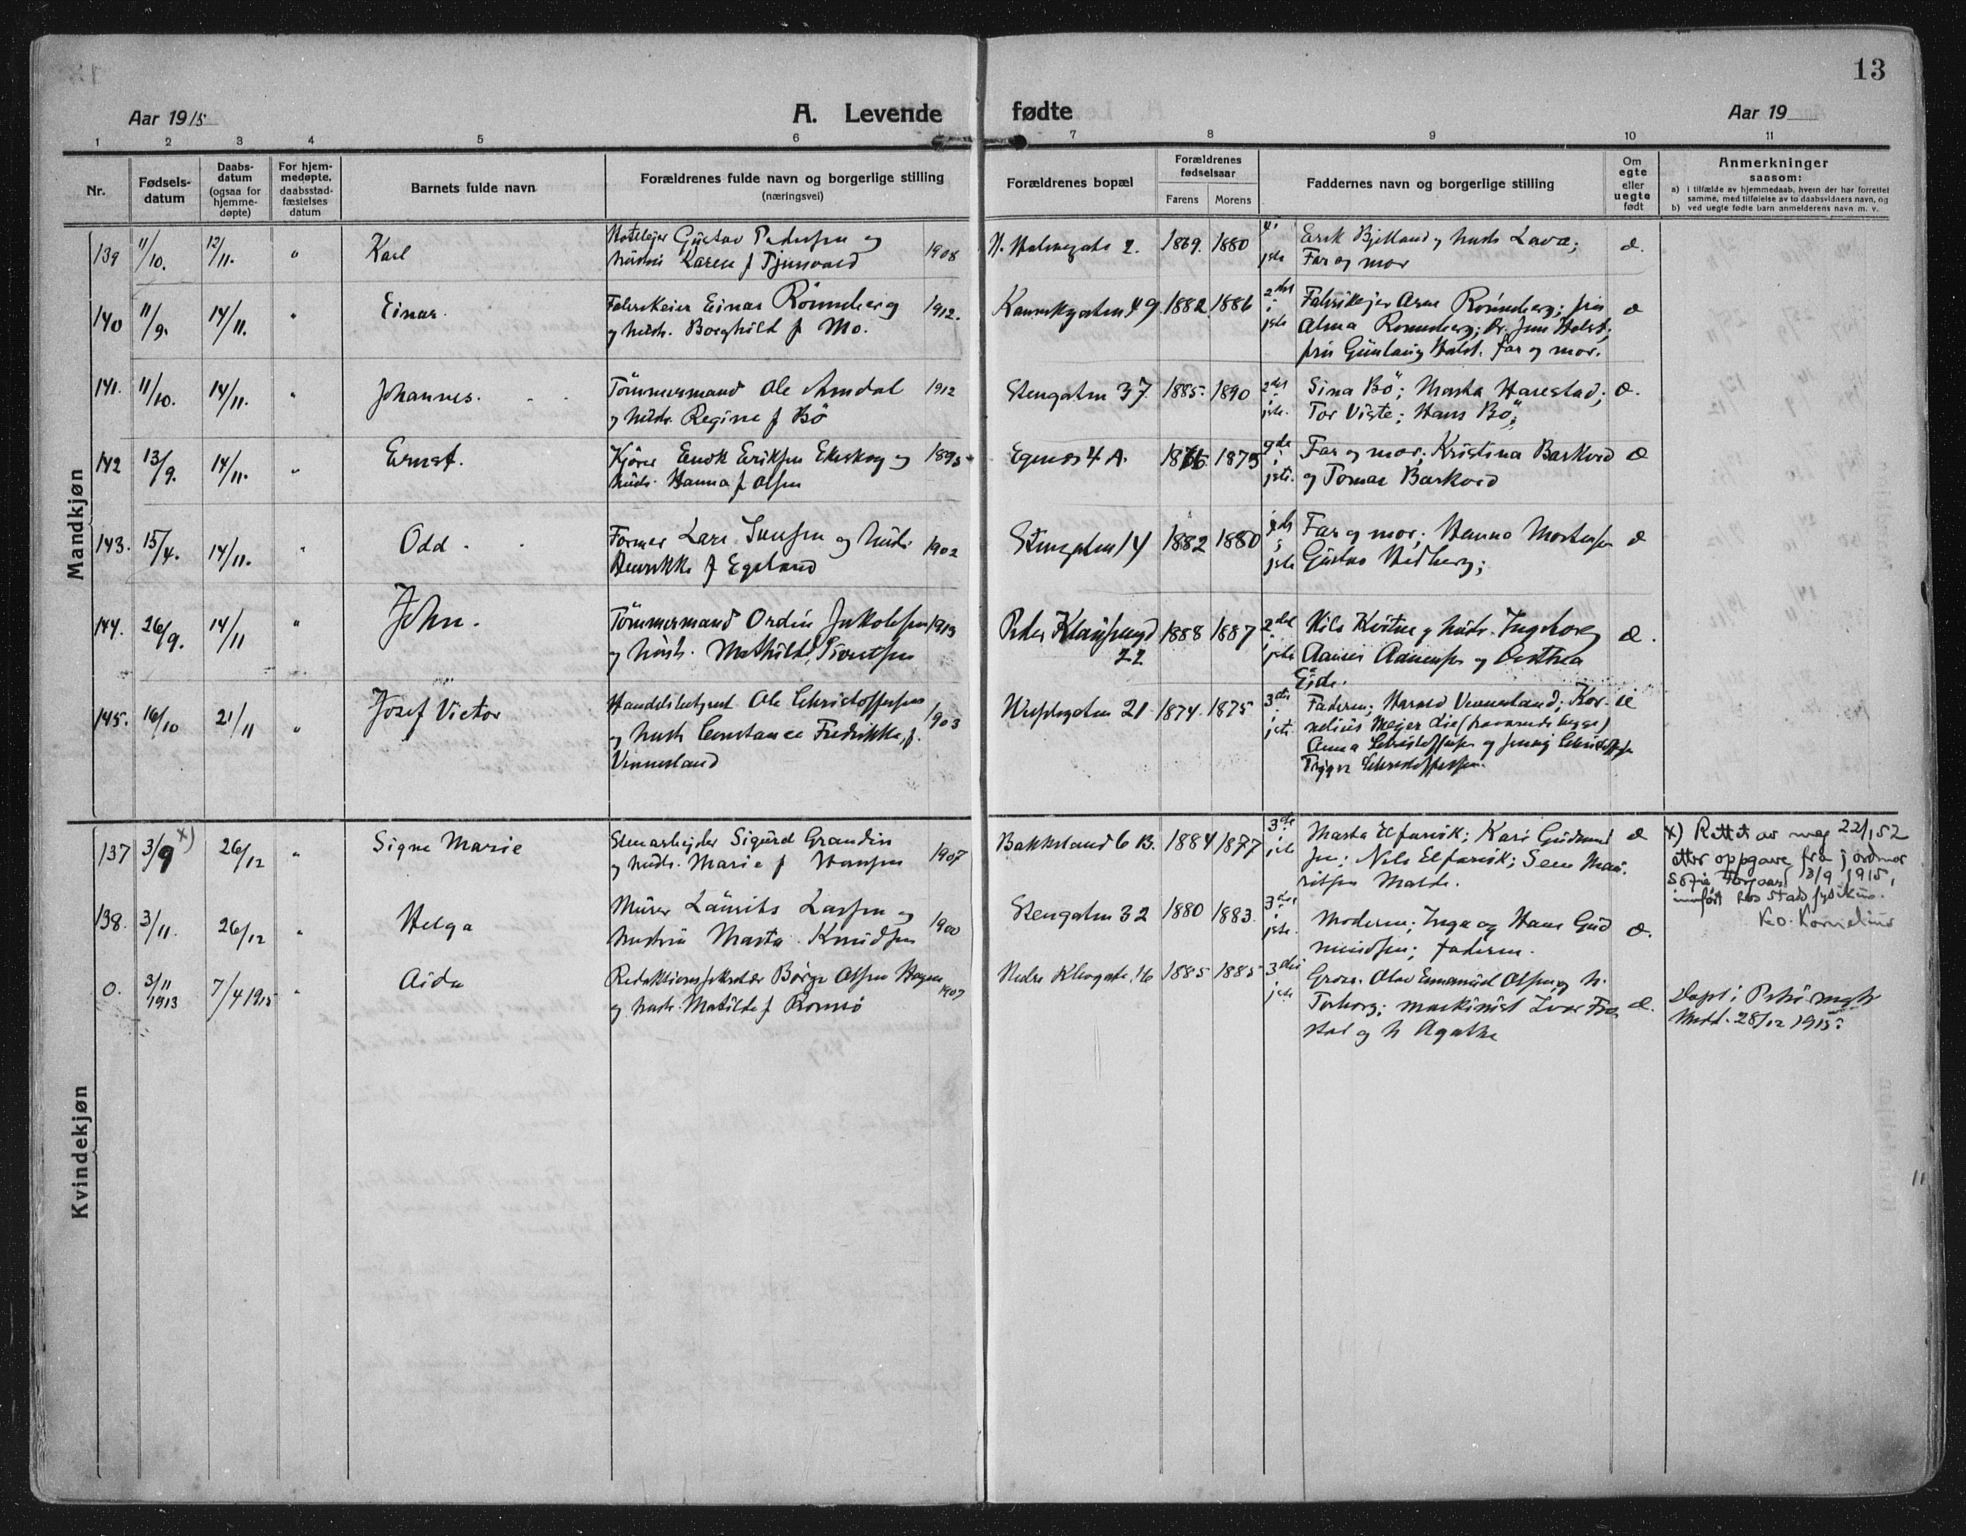 13
Aar 1915
A. Levende fødte
Aar 19
1 2 3 4 5 6 7 8 9 10 11
Nr.
Fødsels-
datum
Daabs-
datum
(ogsaa for
hjemme-
døpte)
For hjem-
medøpte,
daabsstad-
fæstelses
datum
Barnets fulde navn
Forældrenes fulde navn og borgerlige stilling
(næringsvei)
Forældrenes bopæl
Forældrenes
fødselsaar
Farens Morens
Faddernes navn og borgerlige stilling
Om
egte
eller
uegte
født
Anmerkninger
saasom:
a) i tilfælde av hjemmedaab, hvem der har forrettet
samme, med tilføielse av to daabsvidners navn, og
b) ved uegte fødte barn anmelderens navn m. v.
Mandkjøn
139 11/10. 12/11. " Karl
Gustav Pedersen og
hustru Karen f Tjensvold
1908
N. Holmegate 2. 1869. 1880
Erik Bjelland og hustr Lava;
Far og mor
æ.
140 11/9. 14/11. " Einar.
Fabrikeier Einar Rönneberg
og hustr. Borghild f Mo.
1912.
49 1882 1886
2det i jste
Fabrikejer Arne Rönneberg; frü
Alma Rönneberg; Dr. Jens Holst;
frü Günlaug Holst. far og mor.
æ
141. 11/10. 14/11. " Johannes.
Tömmermand Ole Amdal
og hustr. Regine f Bö
1912
Stengaten 37 1885. 1890
2det i jste.
Sina Bö; Marta Harestad;
Tor Viste; Hans Bö;
æ.
142 13/9. 14/11. " Ernst.
Kjörer Enok Eriksen Ekeskog og
hustr. Hanna f Olsen
1895
Egenes 4 A. 1875
9de i jste.
Far og mor; Kristina Barkved
og Tomas Barkved
æ
143. 15/4. 14/11. " Odd.
Former Lars Iversen og hustr
Henrikke f Egeland
1902
Stengaten 14 1882 1880
i jste
Far og mor; Hanna Mortensen
Gustav Hedberg;
æ
144. 26/9. 14/11 " John.
Tömmermand Ordin Jakobsen
og hustr. Mathilde Sivertsen
1913
22 1888 1887
2det i jste
Nils Kvitne og hustr. Ingeborg
og Dorthea
Eide.
æ.
145. 16/10 21/11 " Josef Victor
Handelsbetjent Ole Christoffersen
og hustr Constance Fredrikke, f.
Vinnesland
1903
21 1874. 1875
3die i jste
Faderen; Harald Vinnesland; Kor-
nelius Mejer Lie (fraværende begge)
Anna Christoffersen og Jenny Christoffersen
Trygve Christoffersen.
æ
Kvindekjøn
137 3/9 x) 26/12 " Signe Marie
Stenarbejder Sigurd Grandin
og hustr. Marie f Hansen
1907
Bakkeland 6 B. 1884 1877
3die i jste
Marta Elfarvik; Kari Gudmund
sen; Nils Elfarvik; Sem Mau-
ritsen Malde.
æ
x) Rettet av meg 22/1 52
etter oppgave fra jordmor
Sofie 3/9 1915,
innført hos stadsfysikus.
138. 3/11. 26/12 " Helga
Murer Laurits Larsen og
hustru Marta Knudsen
1900
Stengaten 32 1880 1883.
3die i jste.
Moderen; Inga og Hans Gud
mundsen; faderen.
æ.
0. 3/11 1913 7/4 1915 " Aida
Redaktionssekretær Börge Olsen Hagen
og hustr. Matilde f Romsö
1907
Nedre Klevgate 16 1885 1885
3die i jste
Gross. Olav Emanuel Olsen og h.
Torborg; maskinist Ivar Fre
stad og h Agathe
æ.
Döpt i Petri
Medd. 28/12 1915.